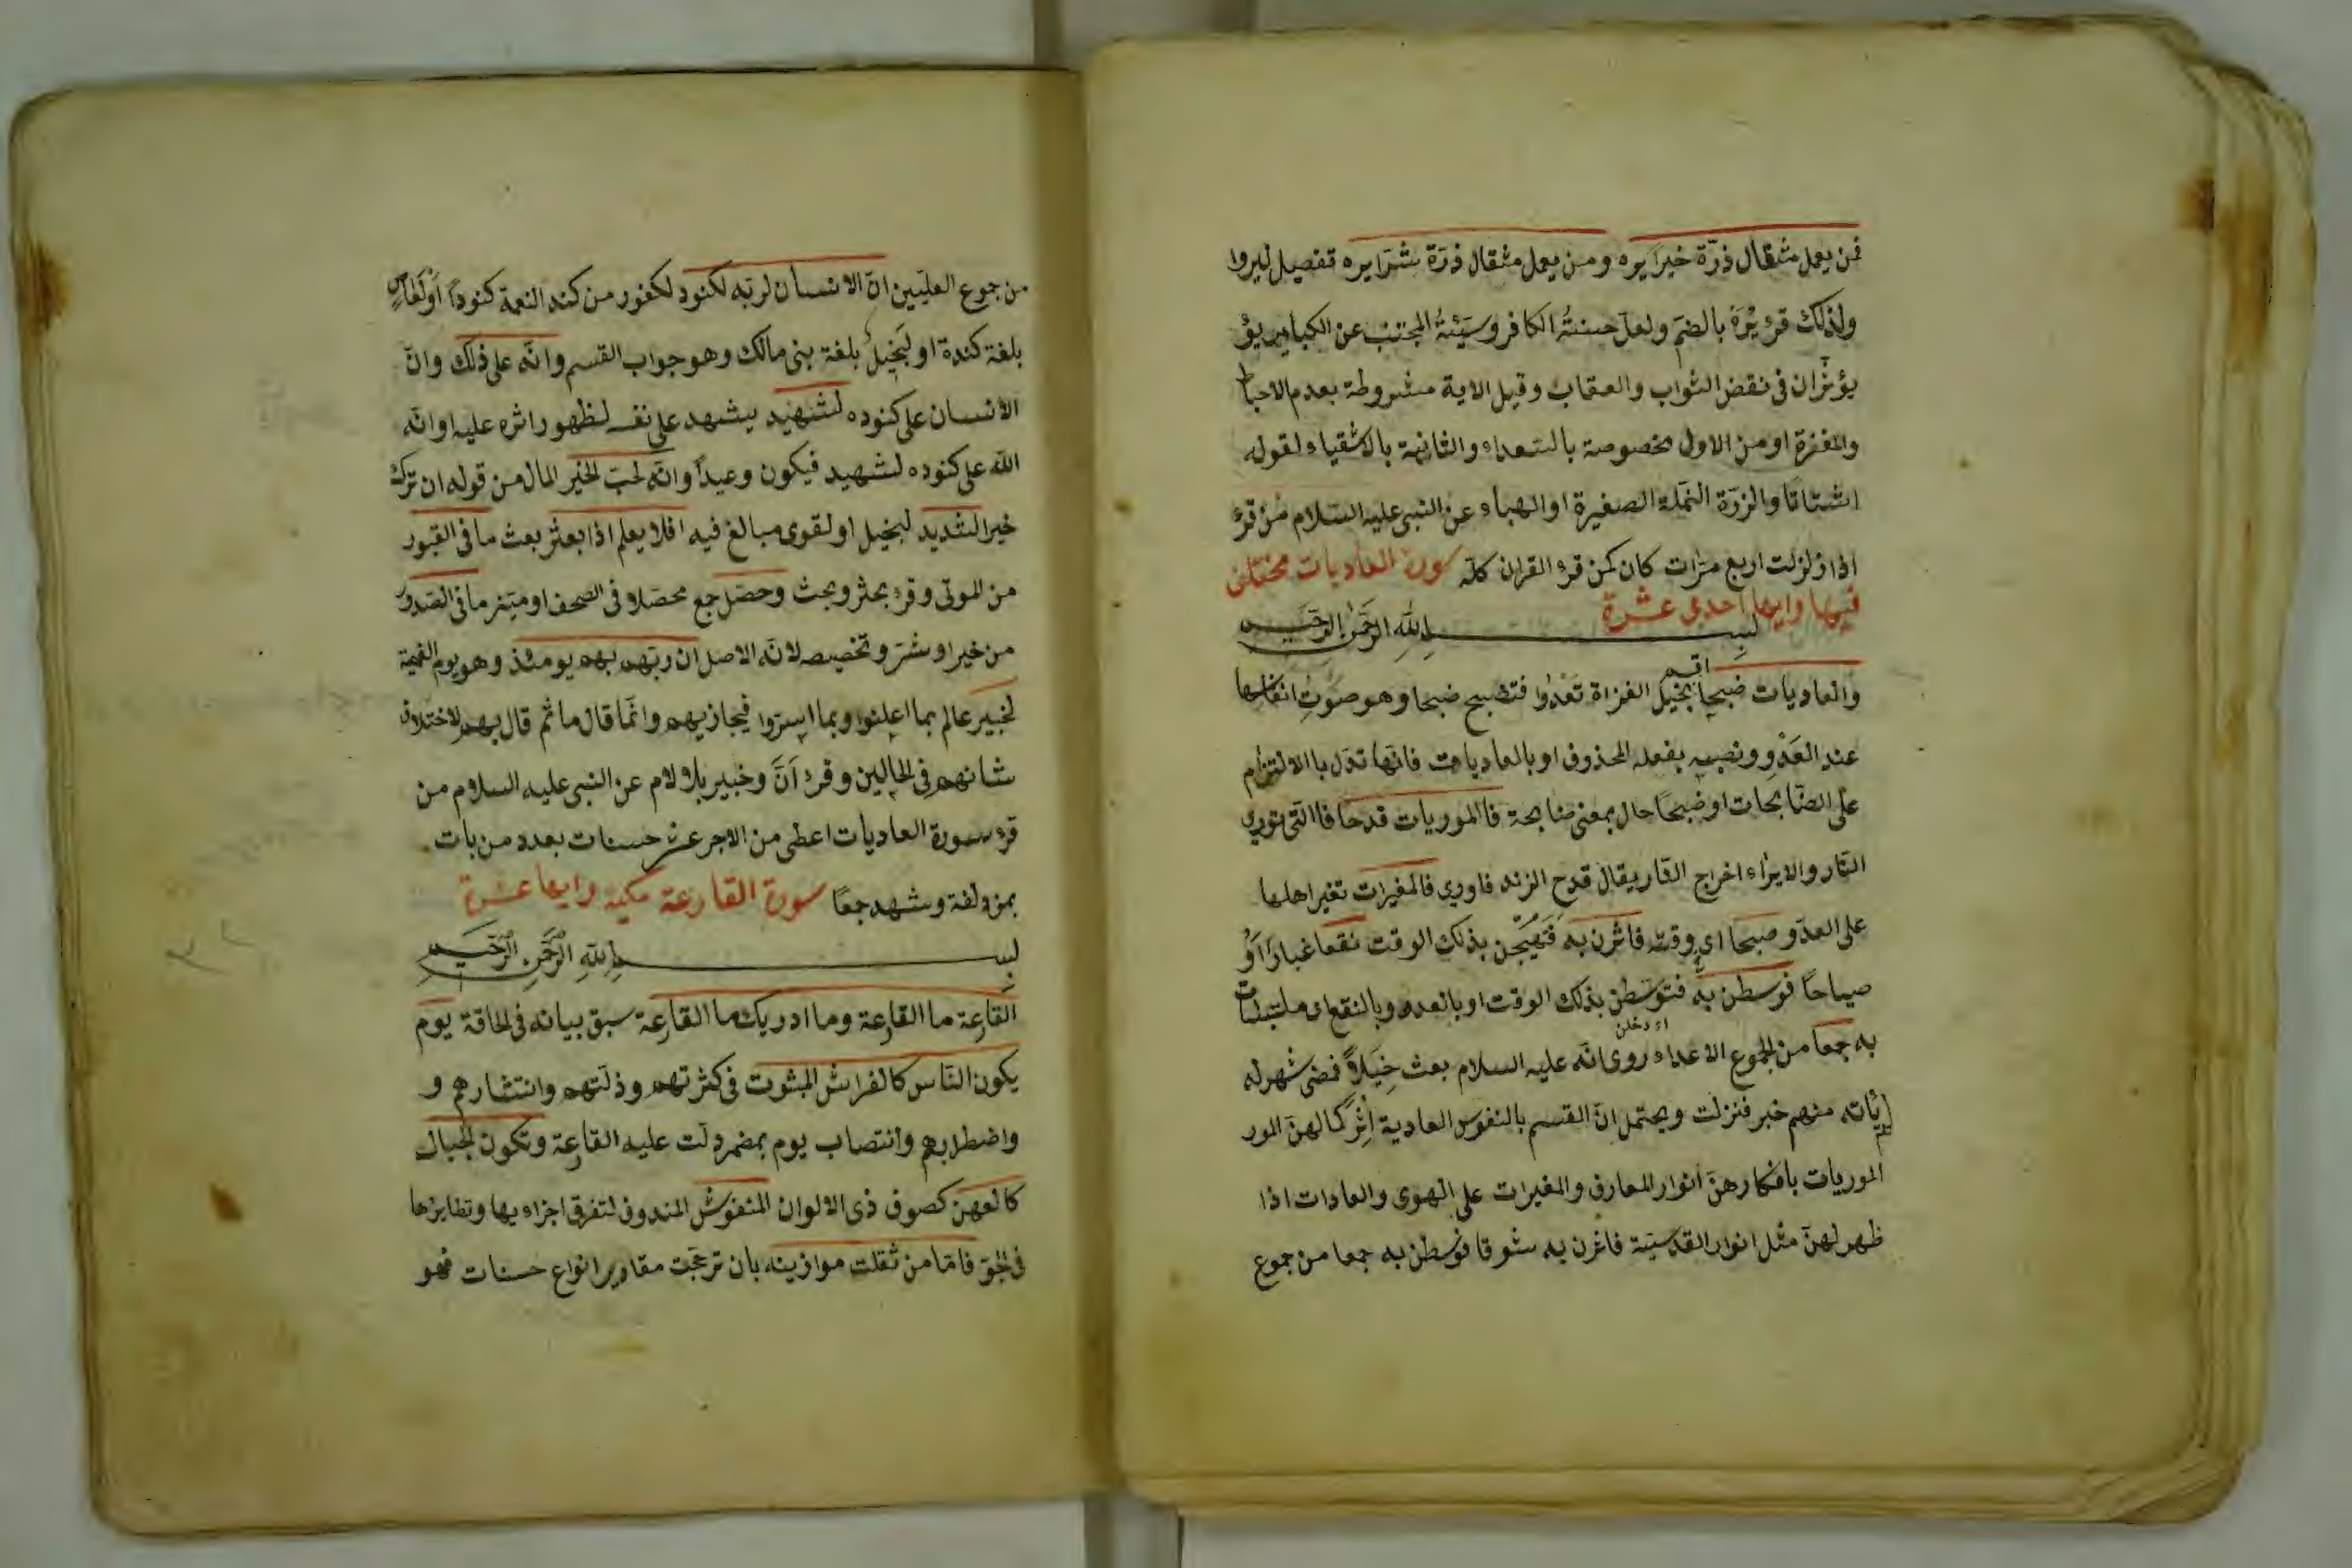 فمن يعمل مثقال ذرّة خيرا يره ومن يعمل مثقال ذرّة شرّا يره تفصيل ليروا
ولذلك قرئ يُرَهُ بالضم ولعل حسنةُ الكافر وسيّئةُ المجتنب عن الكبائر يؤ
يؤثران فى نقض الثواب والعقاب وقيل الاية مشروطة بعدم الاحباط
والمغفرة او من الاول مخصوصة بالسعداء والثانية بالاشقياء لقوله
اشتاتًا والزرّة النملة الصغيرة او الهباء عن النبى عليه السلام من قرئ
اذا زلزلت اربع مرّات كان كمن قرئ القران كله سورة العاديات مختلف
فيها وايها احدى عشرة
بسم الله الرحمن الرحيم
والعاديات ضبحا اقسم بخيل الغزاة تَعْدُوا فتضبح ضبحا وهو صَوْتِ انفاسها
عند العَدْوِ ونصبه بفعله المحذوف او بالعاديات فانّها تدل باالالتزام
على الضّابحات او ضبحًا حال بمعنى ضابحة فاالموريات قدحا فاالتى تورى
النّار والايراء اخراج النّار يقال قدح الزند فاورى فالمغيرات تغير اهلها
على العدوّ صبحا اى وقته فاثرن به فهيّجن بذلك الوقت نقعا غبارًا اَوْ
صياحًا فوسطن به فتوسّطن بذلك الوقت او بالعدو وبالنقع اى ملتبسات
به جمعا من الجموع الاعداء اى دخلن روى انّه عليه السلام بعث خَيْلاً فمضى شهر لم
يأته منهم خبر فنزلت ويحتمل انّ القسم بالنفوس العادية اِثْرَ كمالهنّ المور
الموريات بافكارهنّ انوار المعارف والمغيرات على الهوى والعادات اذا
ظهر لهنّ مثل انوار القدسيّة فاثرن به شوقا فوسطن به جمعا من جموع
من جموع العليّين انّ الانسان لربّه لكنود لكفور من كند النعمة كنودًا اَوْ لَعَاصٍ
بلغة كندة او لَبَخِيلٌ بلغة بنى مالك وهو جواب القسم وانّه على ذلك وانّ
الانسان على كنوده لشهيد يشهد على نفسه لظهور اثره عليه او انّه
الله على كنوده لشهيد فيكون وعيدًا وانّه لحبّ الخير المال من قوله ان ترك
خيرا لشديد لبخيل او لقوى مبالغ فيه افلا يعلم اذا بعثر بعث ما فى القبور
من الموتى وقرئ بحثر وبحث وحصّل جمع محصّلا فى الصحف او ميّز ما فى الصدور
من خير او شرّ وتخصيصه لانّه الاصل ان ربّهم بهم يومئذ وهو يوم القيمة
لخبير عالم بما اعلنوا وبما اسرّوا فيجازيهم وانّما قال ما ثم قال بهم لاختلاف
شانهم فى الحالين وقرئ اَنَّ وخبير بلا لام عن النبى عليه السلام من
قرئ سورة العاديات اعطى من الاجر عشر حسنات بعدد من بات
بمزدلفة وشهد جمعًا سورة القارعة مكية وايها عشرة
بسم الله الرحمن الرحيم
القارعة ما القارعة وما ادريك ما القارعة سبق بيانه فى الحاقة يوم
يكون النّاس كالفراش المبثوث فى كثرتهم وذلّتهم وانتشارهم و
واضطرابهم وانتصاب يوم بمضمر دلّت عليه القارعة وتكون الجبال
كالعهن كصوف ذى الالوان المنفوش المندوف لتفرق اجزاءيها وتطايرها
فى الجو فامّا من ثقلت موازينه بان ترجّحت مقادير انواع حسنات فهو